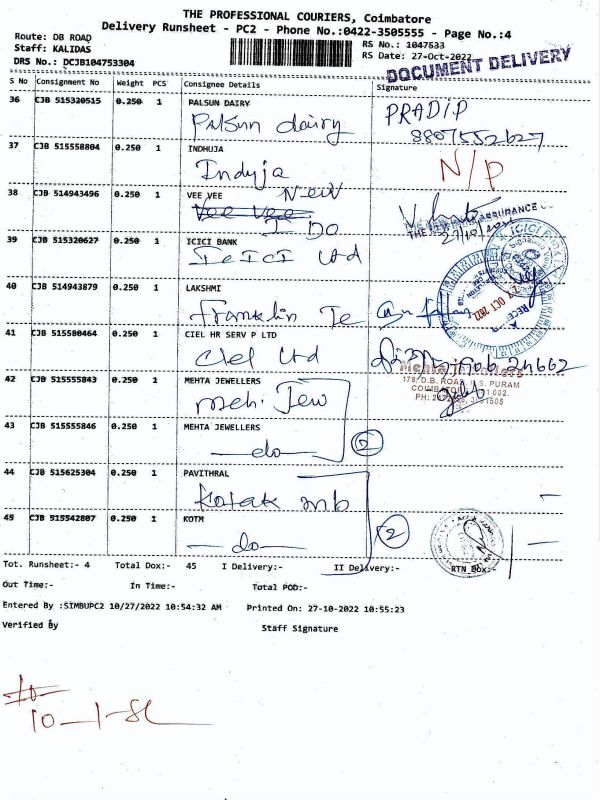 THE PROFESSIONAL COURIERS, Coimbatore
Delivery Runsheet - PC2 - Phone No.:0422-3505555 - Page No.:4
Route: DB ROAD
Staff: KALIDAS
DRS No.: DCJB104753304
RS No.: 1047533
RS Date: 27-Oct-2022
DOCUMENT DELIVERY
S No Consignment No Weight PCS Consignee Details Signature
36 CJB 515320515 0.250 1 PALSUN DAIRY PRADIP
Palsun dairy 8807552627
37 CJB 515558804 0.250 1 INDHUJA
Indyja N/P
38 CJB 514943496 0.250 1 VEE VEE New
Vee Vee
I Do
39 CJB 515320627 0.250 1 ICICI BANK
ICICI Ltd
40 CJB 514943879 0.250 1 LAKSHMI
Franklin Te
41 CJB 515580464 0.250 1 CIEL HR SERV P LTD
Ciel Ltd
42 CJB 515555843 0.250 1 MEHTA JEWELLERS
Meh. Jew
Mehta Jewellers
178, D.B. ROAD, R.S. PURAM
43 CJB 515555846 0.250 1 MEHTA JEWELLERS
—do— 2
44 CJB 515625304 0.250 1 PAVITHRAL
Kotak mb
45 CJB 515542807 0.250 1 KOTM
—do— 2
Tot. Runsheet:- 4 Total Dox:- 45 I Delivery:- II Delivery:- RTN Dox:-
Out Time:- In Time:- Total POD:-
Entered By :SIMBUPC2 10/27/2022 10:54:32 AM Printed On: 27-10-2022 10:55:23
Verified By Staff Signature